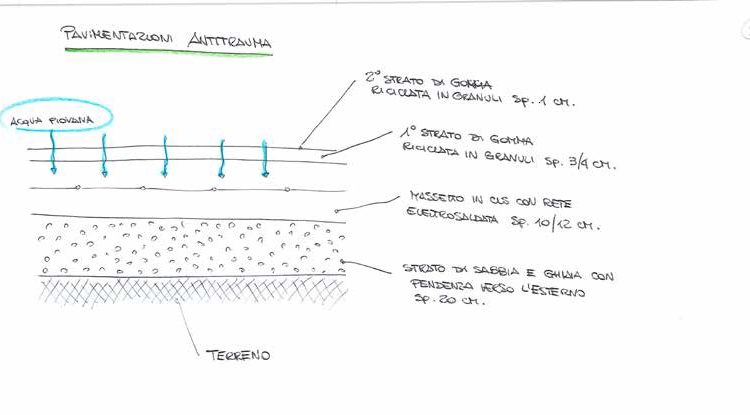 PAVIMENTAZIONI ANTITRAUMA
2° STRATO DI GOMMA
RICICLATA IN GRANULI SP. 1 CM.
ACQUA PIOVANA
1° STRATO DI GOMMA
RICICLATA IN GRANULI SP. 3/4 CM.
MASSETTO IN CLS CON RETE
ELETTROSALDATA SP. 10/12 CM.
STRATO DI SABBIA E GHIAIA CON
PENDENZA VERSO L'ESTERNO
SP. 20 CM.
TERRENO